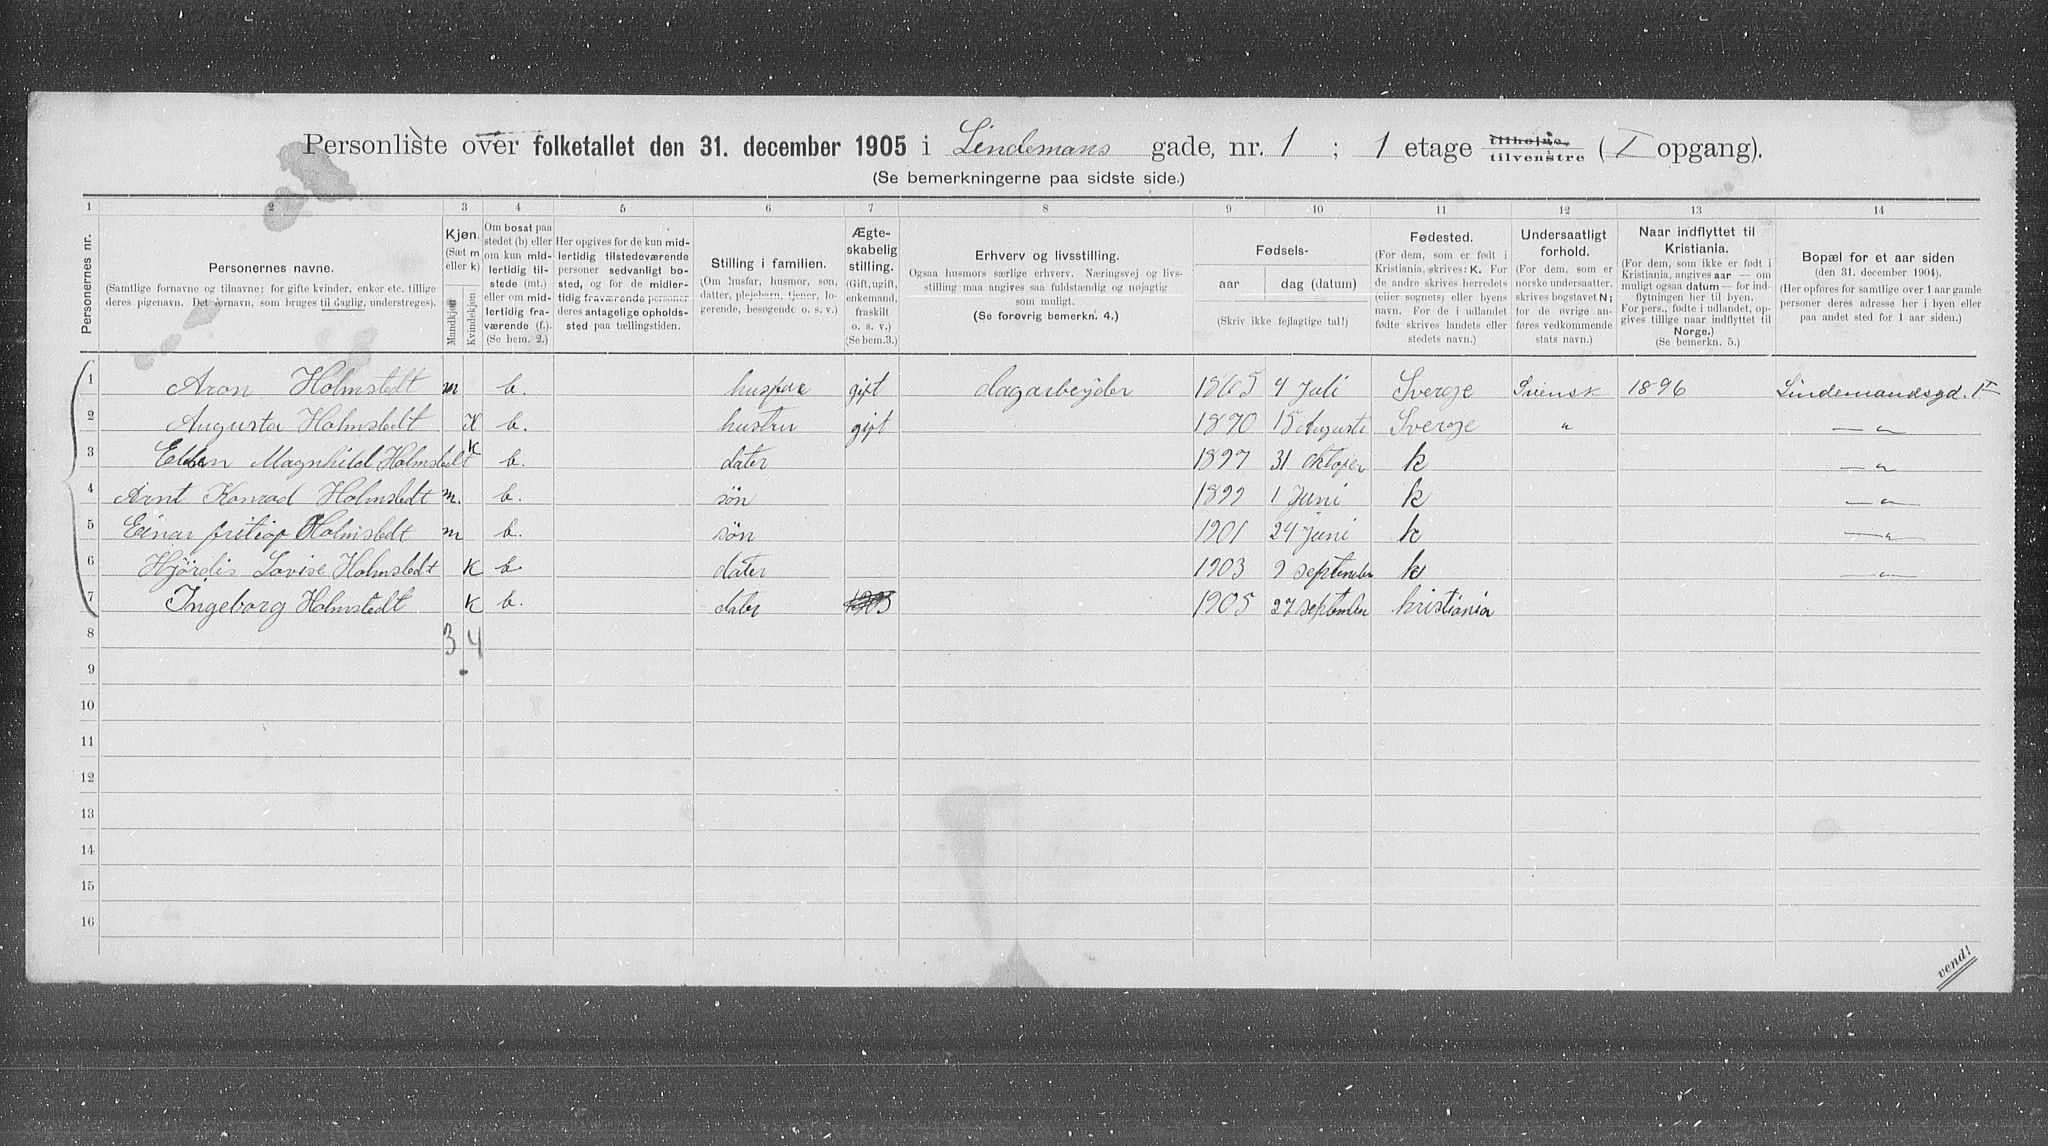 Personliste over folketallet den 31. december 1905 i Lindemans gade, nr. 1 ; 1 etage tilhøire, tilvenstre ( I opgang).
(Se bemerkningerne paa sidste side.)
1 2 3 4 5 6 7 8 9 10 11 12 13 14
Personernes nr.
Personernes navne.
(Samtlige fornavne og tilnavne; for gifte kvinder, enker etc. tillige
deres pigenavn. Det fornavn, som bruges til daglig, understreges).
Kjøn.
(Sæt m
eller k)
Mandkjøn
Kvindekjøn
Om bosat paa
stedet (b) eller
om kun midlertidig
tilstede (mt.)
eller om midlertidig
fraværende (f.).
(Se bem. 2.)
Her opgives for de kun midlertidig
tilstedeværende
personer sedvanligt bosted,
og for de midlertidig
fraværende personer
deres antagelige opholdssted
paa tællingstiden.
Stilling i familien.
(Om husfar, husmor, søn,
datter, plejebarn, tjener, logerende,
besøgende o. s. v.)
Ægteskabelig
stilling.
(Gift, ugift,
enkemand,
fraskilt
o. s. v.)
(Se bem.3.)
Erhverv og livsstilling.
Ogsaa husmors særlige erhverv. Næringsvej og livsstilling
maa angives saa fuldstændig og nøjagtig
som muligt.
(Se forøvrig bemerkn. 4.)
Fødsels-
aar dag (datum)
(Skriv ikke fejlagtige tal!)
Fødested.
(For dem, som er født i
Kristiania, skrives: K. For
de andre skrives herredets
(eller sognets) eller byens
navn. For de i udlandet
fødte skrives landets eller
stedets navn.)
Undersaatligt
forhold.
(For dem, som er
norske undersaatter,
skrives bogstavet N;
for de øvrige anføres
vedkommende
stats navn.)
Naar indflyttet til
Kristiania.
(For dem, som ikke er født i
Kristiania, angives aar — om
muligt ogsaa datum — for indflytningen
her til byen.
For pers., fødte i udlandet, opgives
tillige naar indflyttet til
Norge.)
(Se bemerkn. 5.)
Bopæl for et aar siden
(den 31. december 1904).
(Her opføres for samtlige over 1 aar gamle
personer deres adresse her i byen eller
paa andet sted for 1 aar siden.)
1 Aron Holmstedt m b. husfar gift dagarbejder 1865 4 Juli Sverge Svensk 1896 Lindemandsgd. 1 I
2 Augusta Holmstedt K b. hustru gift 1870 15 Auguste Sverge " — " —
3 Ellen Magnhild Holmstedt K b. dater 1897 31 oktober k — " —
4 Arnt Konrad Holmstedt m. b. søn 1899 1 Juni k — " —
5 Einar fritiof Holmstedt m b. søn 1901 24 juni k — " —
6 Hjördis Lovise Holmstedt K b. dater 1903 9 september k — " —
7 Ingeborg Holmstedt K b. dater 1905 1905 27 september kristiania
8 3 4
9
10
11
12
13
14
15
16
vend!